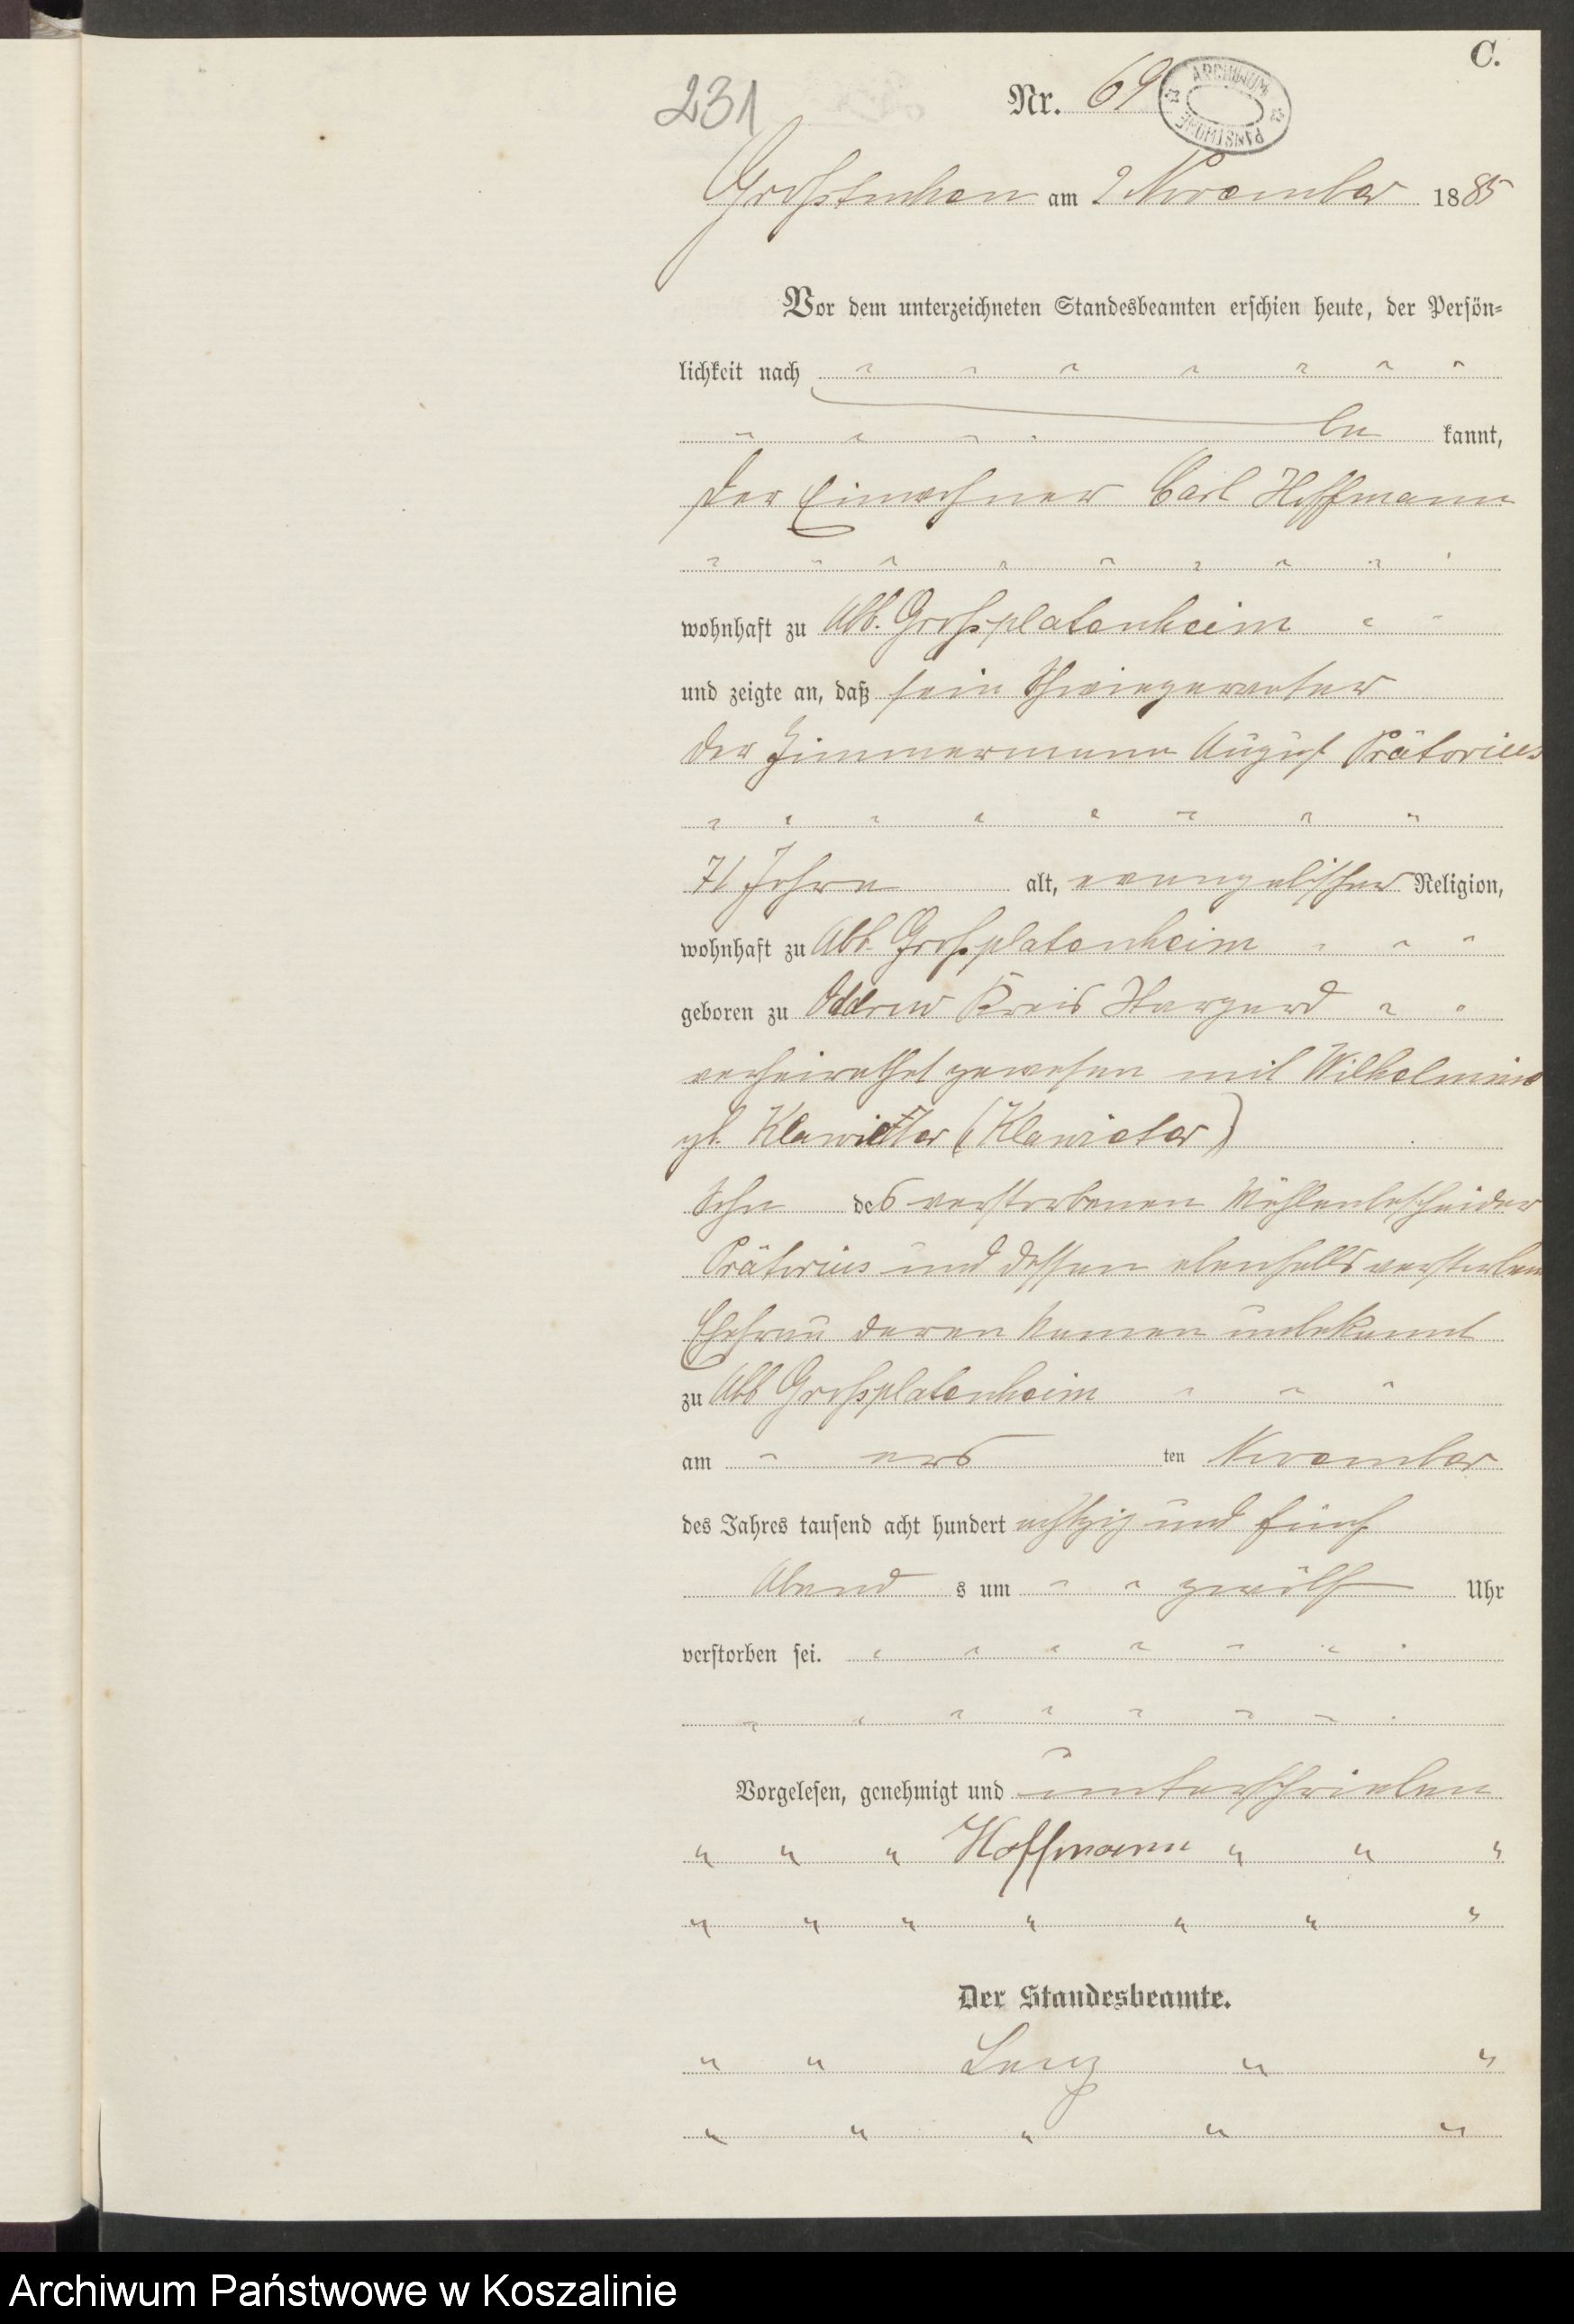 C.
231
Nr. 69
ARCHIWUM PAŃSTWOWE
Großtuchen am 2 November 1885
Vor dem unterzeichneten Standesbeamten erschien heute, der Persön-
lichkeit nach
be kannt,
der Einwohner Carl Hoffmann
wohnhaft zu Abb. Großplatenheim
und zeigte an, daß sein Schwiegervater
der Zimmermann August Prätorius
71 Jahre alt, evangelischer Religion,
wohnhaft zu Abb. Großplatenheim
geboren zu Kreis Stargard
verheirathet gewesen mit Wilhelmine
gb. Klawitter (Klawieter)
Sohn des verstorbenen Mühlenbescheider
Prätorius und dessen ebenfalls verstorbene
Ehefrau deren Namen unbekannt
zu Abb Großplatenheim
am ers ten November
des Jahres tausend acht hundert achtzig und fünf
Abend s um zwölf Uhr
verstorben sei.
Vorgelesen, genehmigt und unterschrieben
" " " Hoffmann " " "
" " " " " " "
Der Standesbeamte.
" " Lenz " "
" " " " "
Archiwum Państwowe w Koszalinie